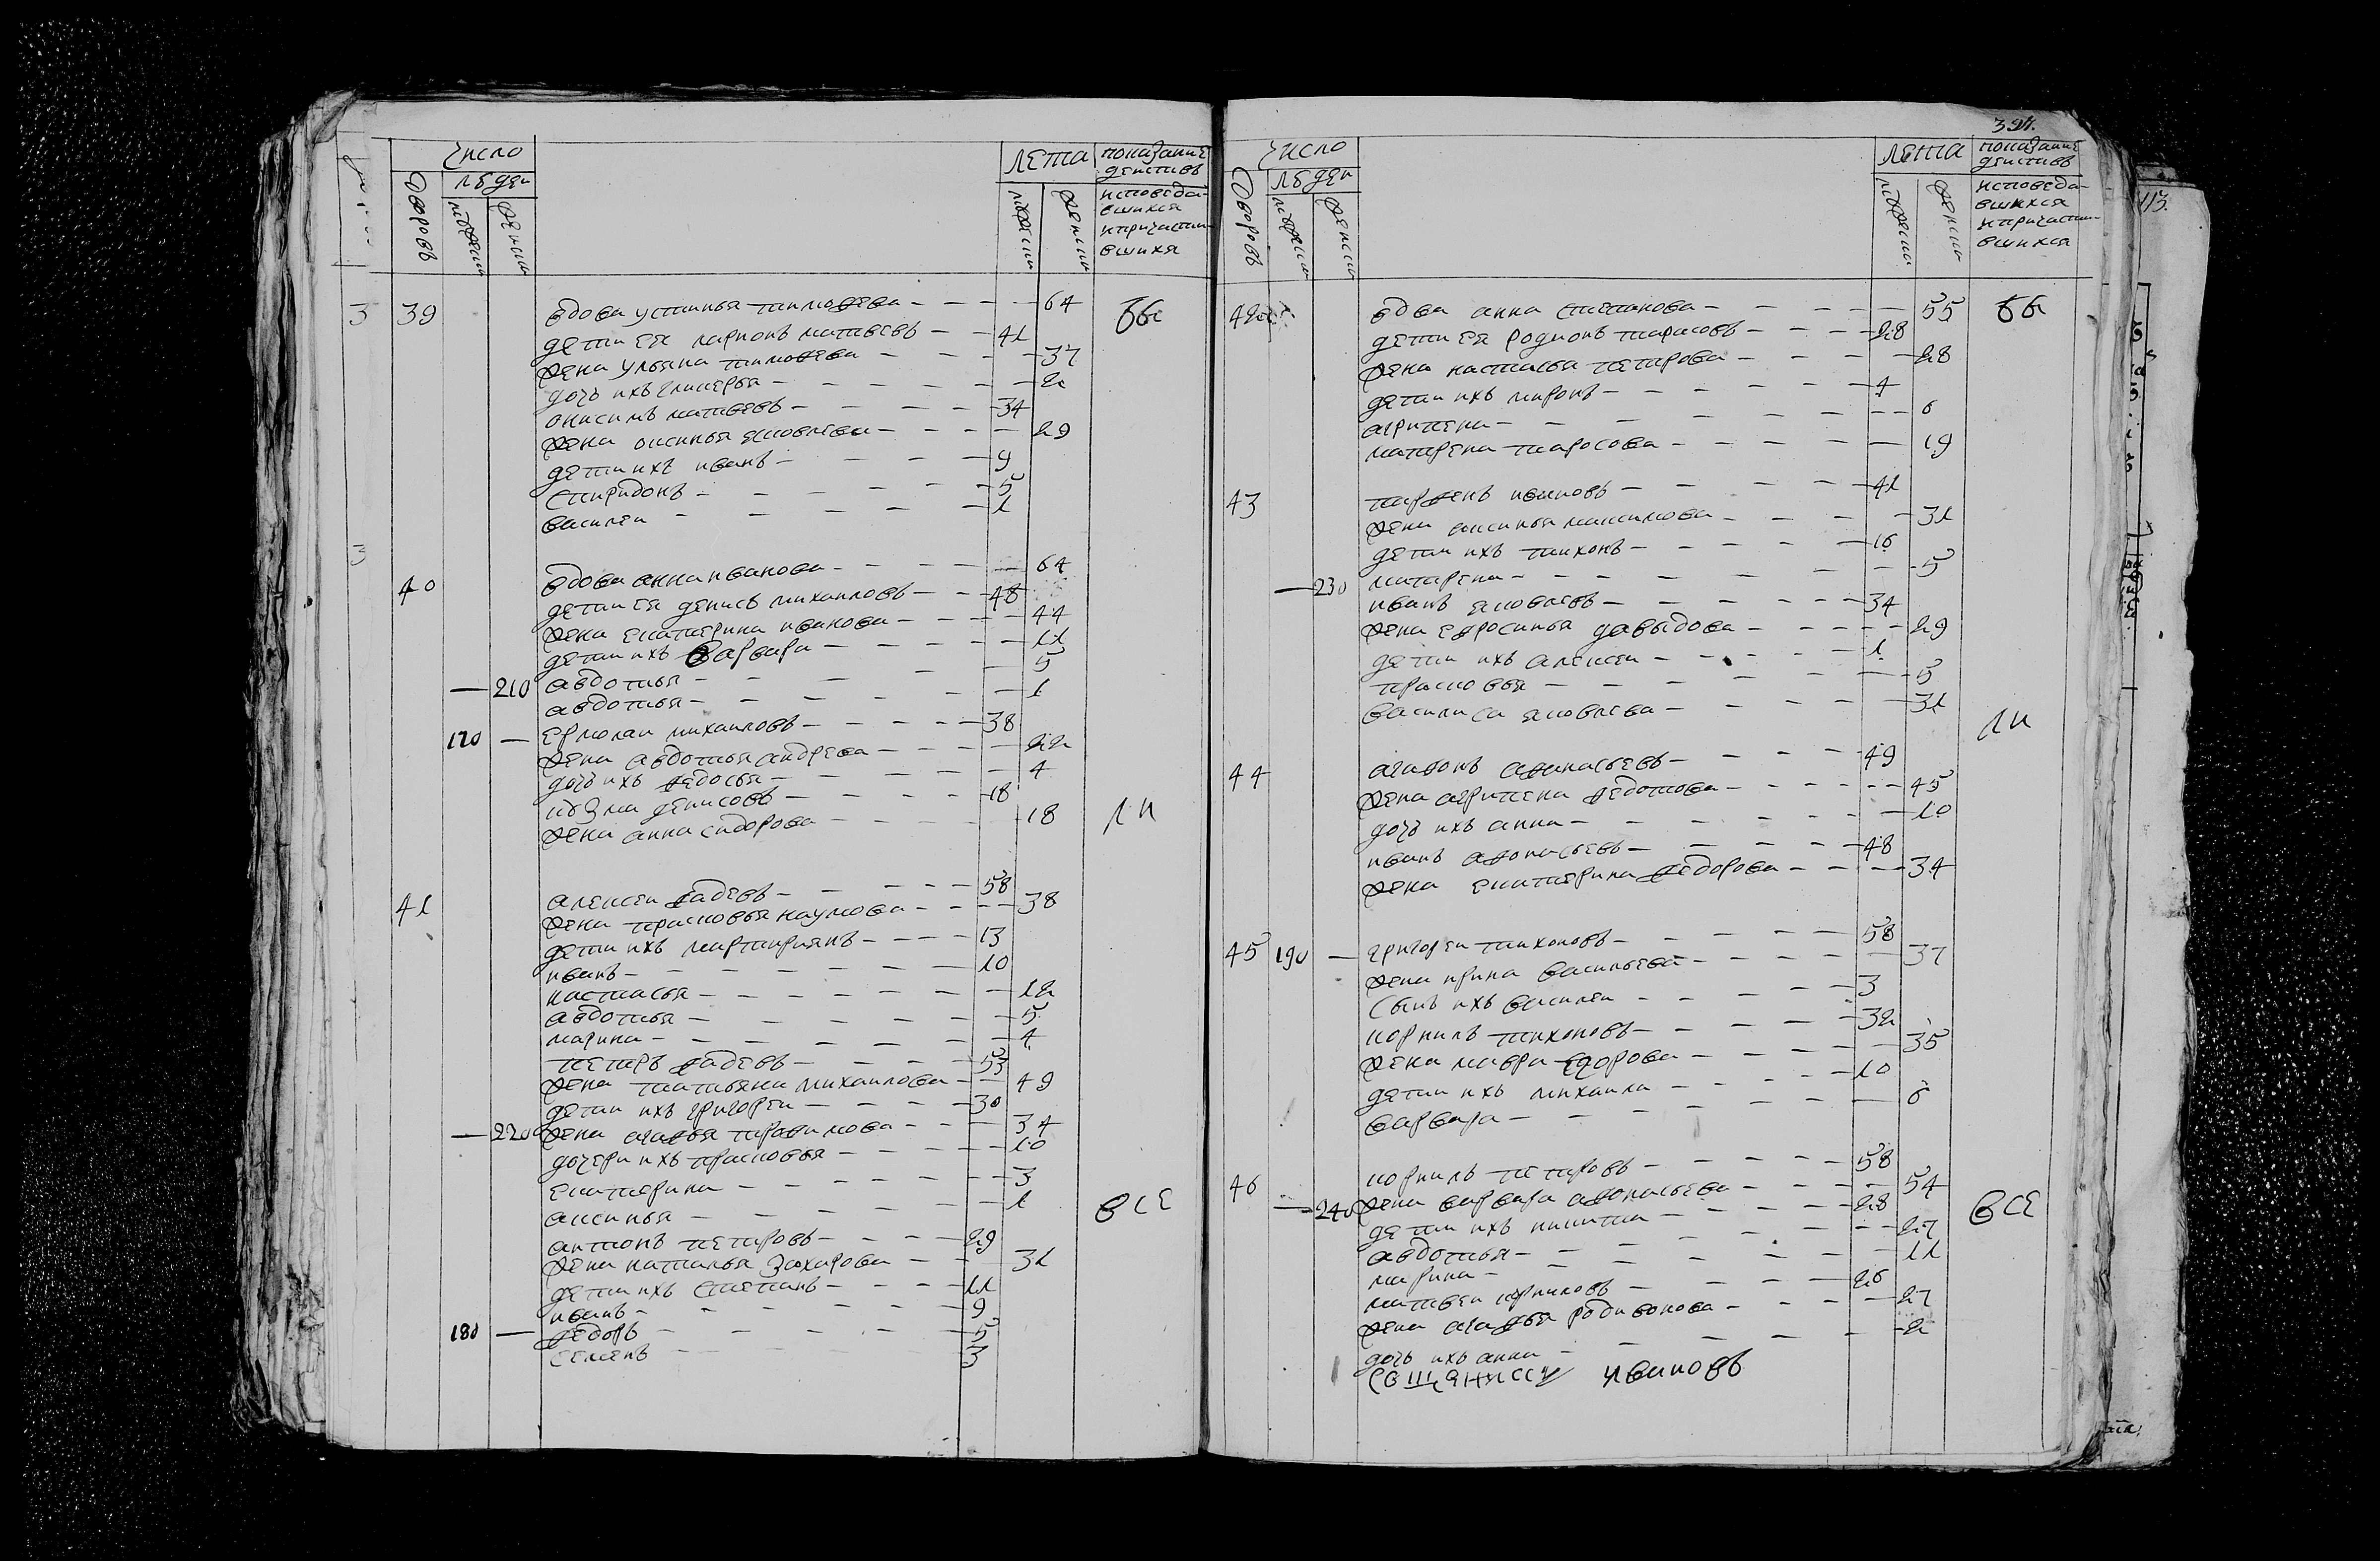 число
людеи
дворовъ
мужеска
женска
лета
мужеска
женска
показание
действъ
исповеда-
вшихся
и причасти-
вшихся
3 39 вдова устинья тимофева - - - 64 бы
дети ея ларионъ матвеевъ - - 41
жена ульяна тимофева - - - 37
дочь ихъ гликерья - - - 2
онисимъ матвеевъ - - - 34
жена оксинья яковлева - - - 29
дети ихъ иванъ - - - 9
спиридонъ - - - 5
василеи - - - 1
3
40 вдова анна иванова - - - 64
дети ея денисъ михаиловъ - - 48
жена екатерина иванова - - - 44
дети ихъ варвара - - - 11
— 210 авдотья - - - 5
авдотья - - - 1
170 — ермолаи михаиловъ - - - 38
жена авдотья андрева - - - 22
дочь ихъ федосья - - - 4
кузма денисовъ - - - 18
жена анна сидорова - - - 18 ли
41 алексеи фадевъ - - - 58
жена прасковья наумова - - - 38
дети ихъ мартириянъ - - - 13
иванъ - - - 10
настасья - - - 12
авдотья - - - 5
марина - - - 4
петръ фадевъ - - - 53
жена татьяна михаилова - - 49
дети ихъ григореи - - - 30
— 220 жена агафья трофимова - - - 34
дочери ихъ прасковья - - - 10
екатерина - - - 3
аксинья - - - 1 все
антонъ петровъ - - - 29
жена наталья захарова - - - 31
дети ихъ степанъ - - - 11
иванъ - - - 9
180 — федоръ - - - 5
семенъ - - - 3
394.
число
людеи
дворовъ
мужеска
женска
лета
мужеска
женска
показание
действъ
исповеда-
вшихся
и причасти-
вшихся
42 вдва анна степанова - - - 55 бы
дети ея родионъ тарасовъ - - - 28
жена настасья петрова - - - 28
дети ихъ миронъ - - - 4
агрипена - - - 6
матрена таросова - - - 19
43 парфенъ ивановъ - - - 41
жена аксинья максимова - - - 31
дети ихъ тихонъ - - - 16
— 230 матрена - - - 5
иванъ яковлевъ - - - 34
жена ефросинья давыдова - - - 29
дети ихъ алексеи - - - 1
прасковья - - - 5
василиса яковлева - - - 31
ли
44 агафонъ афанасьевъ - - - 49
жена агрипена федотова - - - 45
дочь ихъ анна - - - 10
иванъ афонасьевъ - - - 48
жена екатерина федорова - - - 34
45 190 — григореи тихоновъ - - - 58
жена ирина васильева - - - 37
сынъ ихъ василеи - - - 3
корнилъ тихоновъ - - - 32
жена мавра едорова - - - 35
дети ихъ михаила - - - 10
варвара - - - 6
46 корнилъ петровъ - - - 58
— 240 жена варвара афонасьева - - - 54
дети ихъ никита - - - 28 все
авдотья - - - 27
марина - - - 11
матвеи корниловъ - - - 26
жена агафья родивонова - - - 27
дочь ихъ анна - - - 2
ивановъ
113.